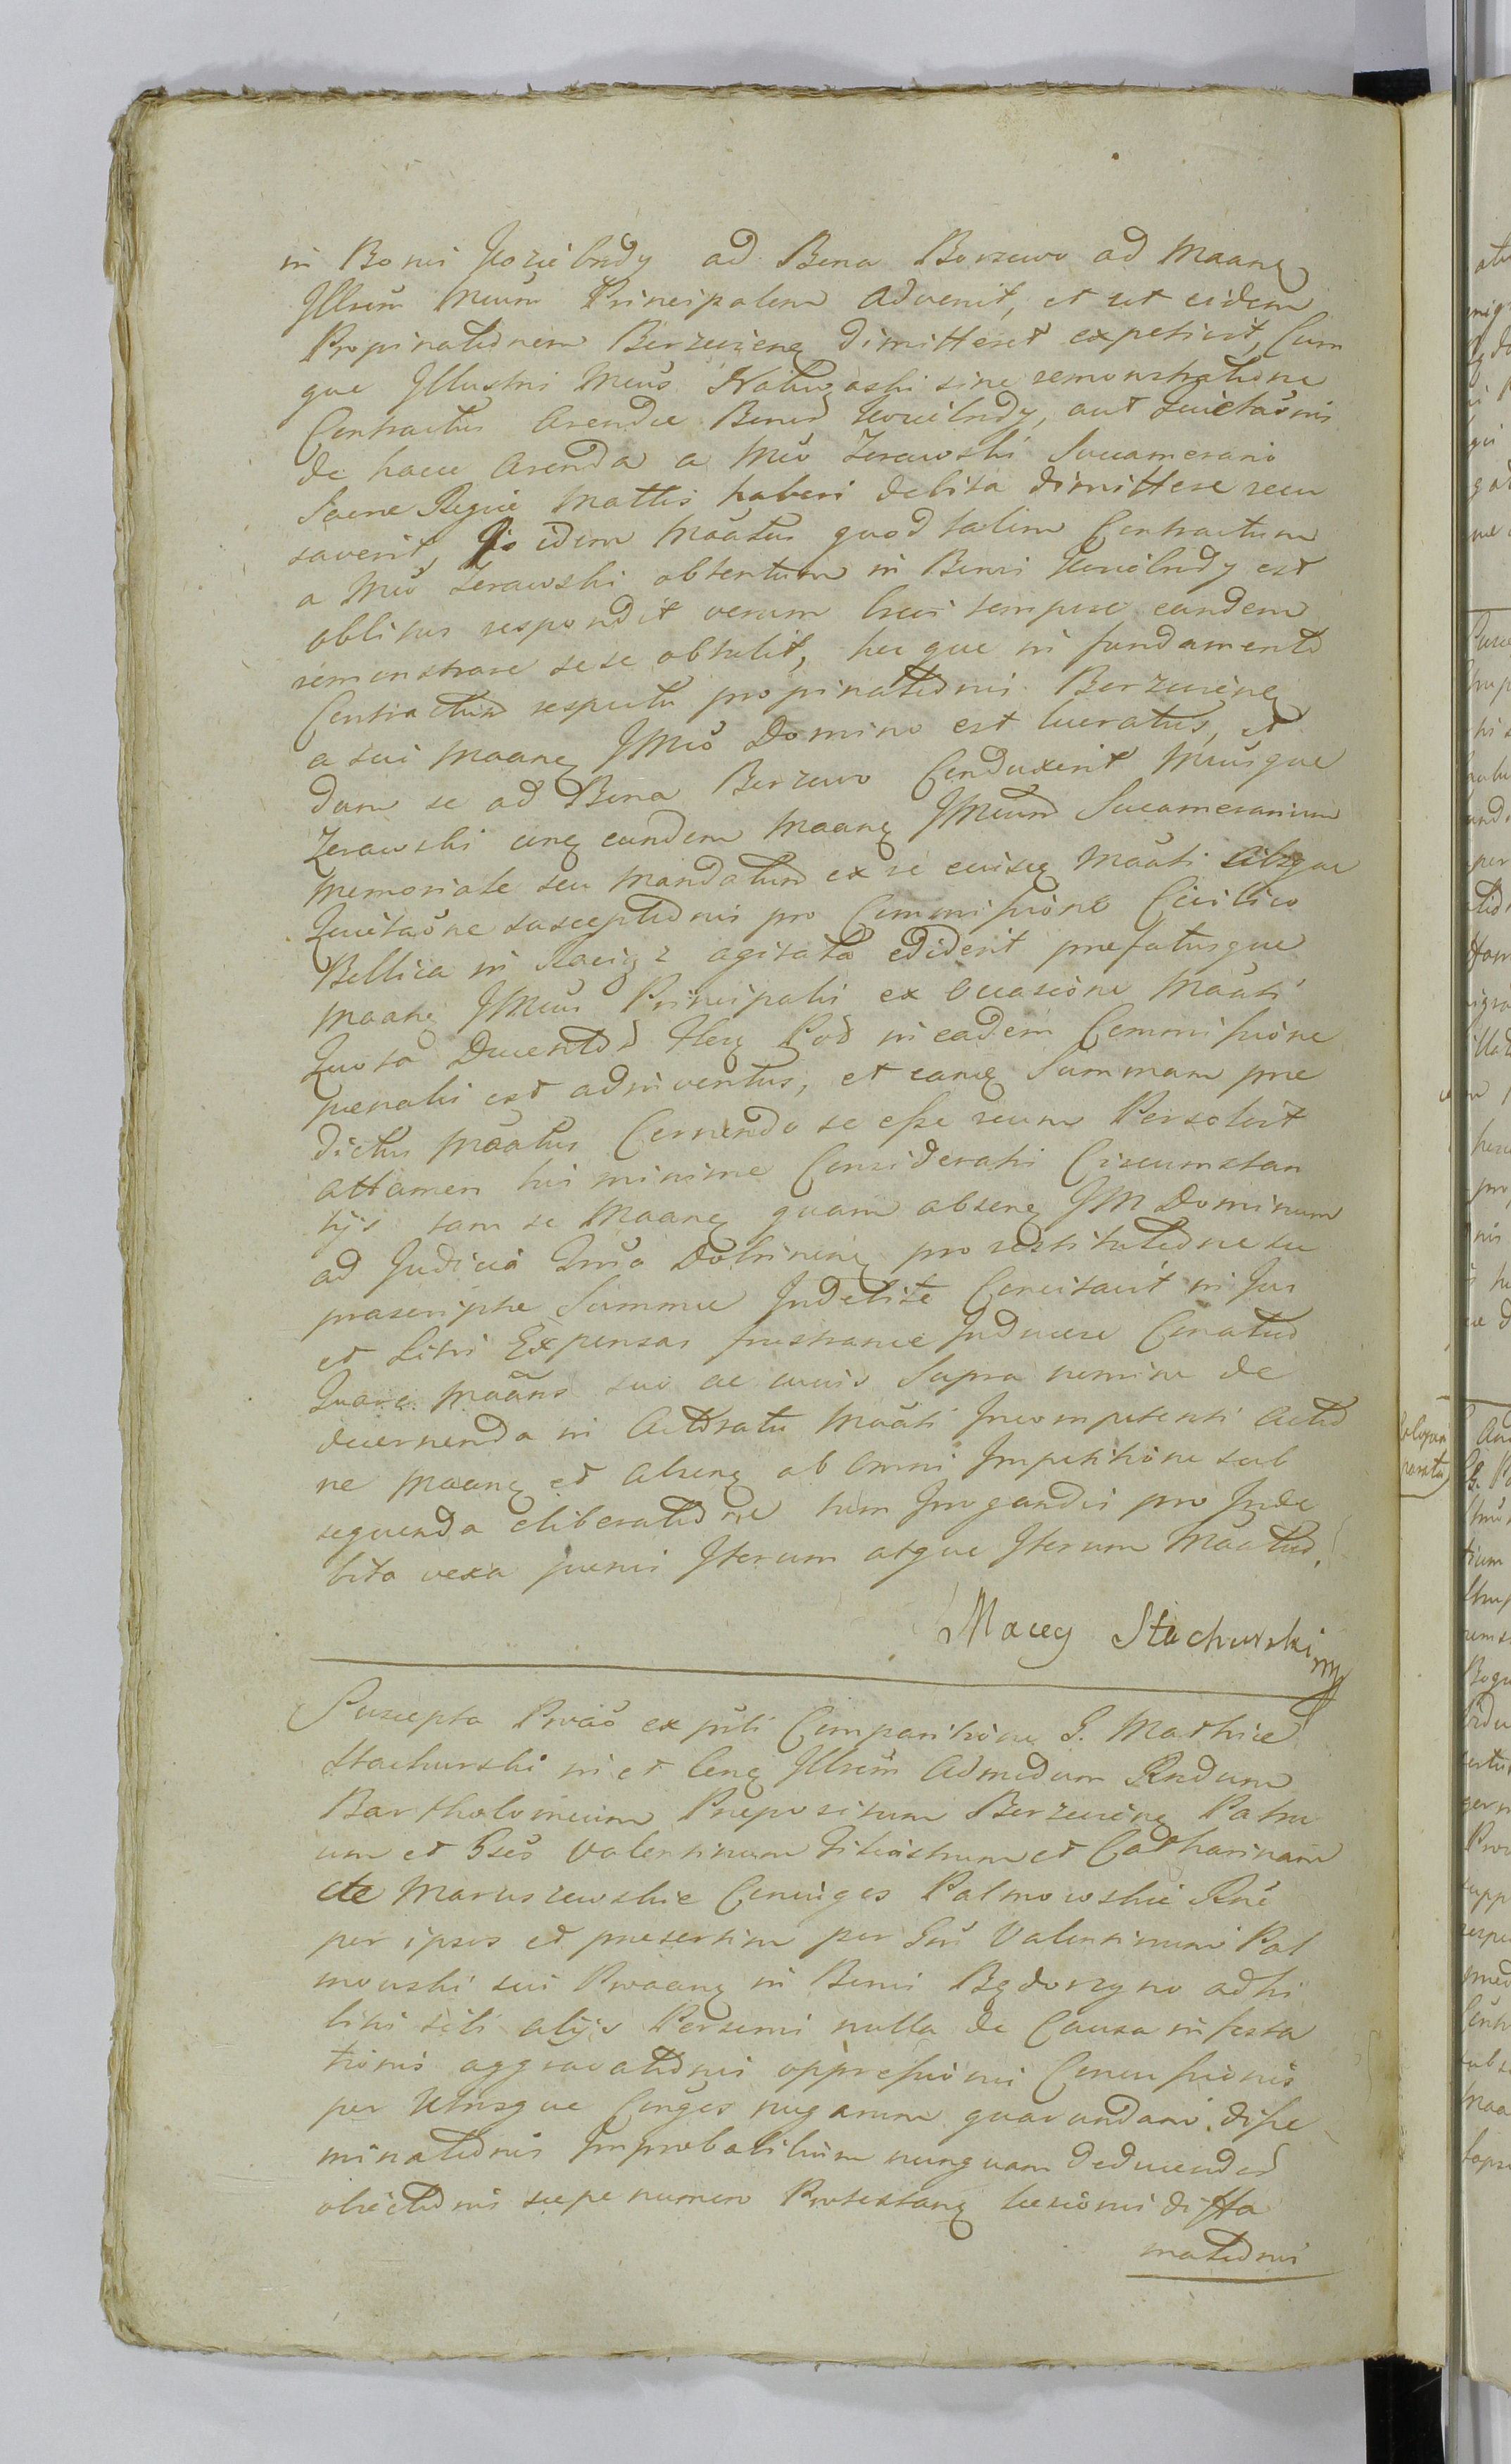 in Bonis Koziebrody ad Bona Borzewo ad Maanę
Jllrem Meum Principalem advenit, et ut eidem
Propinationem Borzewienę dimitteret expetivit, Cum
que Jllustris Meus Nałuzaski sine remonstratione
Contractus Arendæ Bonor Koziebrody, aut Quietaõnis
de hacce Arenda a Mco Zerawski Succamerario
Sacræ Regiæ Mattis haberi debita dimittere recu
saverit, Js idem Maatus quod talem Contractum
a Mco Zerawski obtentum in Bonis Koziebrody est
oblitus respondit verum brevi tempore eundem
remonstrare sese obtulit, hicque in fundamento
Contractus respectu propinationis Borzewienę
a sui Maanę JMco Domino est lucratus, et
dum se ad Bona Borzewo Conduxerit Mcusque
Zerawski unę eundem Maanę JMcum Succamerarium
Memoriale seu Mandatum ex re cuiusę Maati absque
Quietaõne susceptionis pro Commissione Civilico
Bellica in Raciąz agitata ediderit præfatusque
Maanę JMcus Principalis ex Occasione Maati
Quota Ducentor flor Pol in eadem Commissione
pænali est adinventus, et eanę Summam præ
dictus Maatus Cernendo se esse reum Persolvit
attamen his minime Consideratis Circumstan
tijs tam se Maanę quam absenę JM Dominum
ad Judicia Grria Dobrinenę pro restitutione su
prascriptæ Summæ Jndebite Concitavit in Jus
et Litis Expensas frustranee Jnducere Conatur
Quare Maans suo ac cuius Supra nomine de
decernenda in Actoratu Maati Jncompetenti Actio
ne Maanę et Absenę ab Omni Jmpetitione sub
sequenda eliberatione tum Jrrogandis pro Jnde
bita vexa pænis Jterum atque Jterum Maatur.
Maciey Stachurski mp
Suscepta Prvaõ ex prti Comparitione G. Mathiæ
Stachurski in et Conę Jllrem Admodum Rndum
Bartholomeum Præpositum Borzewienę Patru
um et Gsos Valentinum filiastrum et Catharinam
de Maruszewskie Coniuges Palmowskie Rne
per ipsos et præsertim per Gm Valentinum Pal
mowski sui Prvaanę in Bonis Bądorzyno adhi
biti sibi alijs Personis nulla de Causa infesta
tionis aggravationis oppressionis Concussionis
per Utrosque Conges nugarum quarundam disse
minationis Jmprobabilium nunquam deducendar
obiectionis sæpe numero Protestanę læsionis diffa
mationis